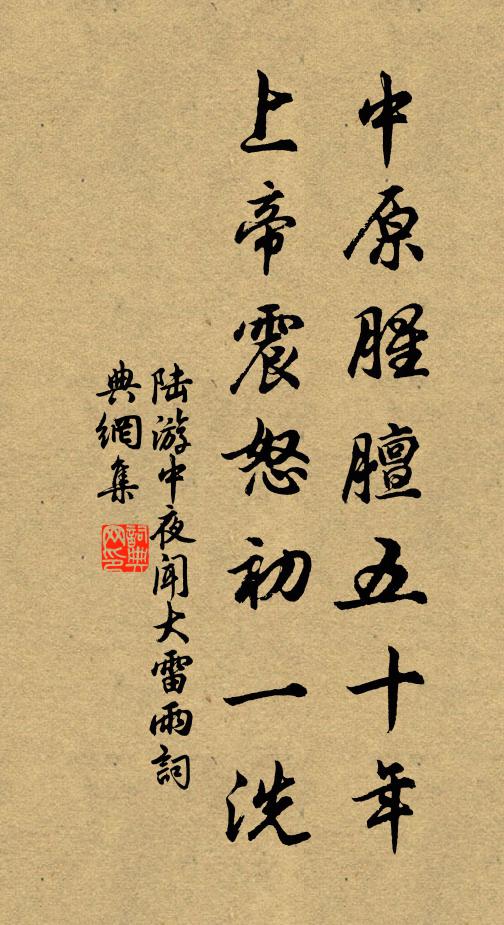 中原腥膻五十年
上帝震怒初一洗
陆游中夜闻大雷雨詞
典網集
詞典
网印